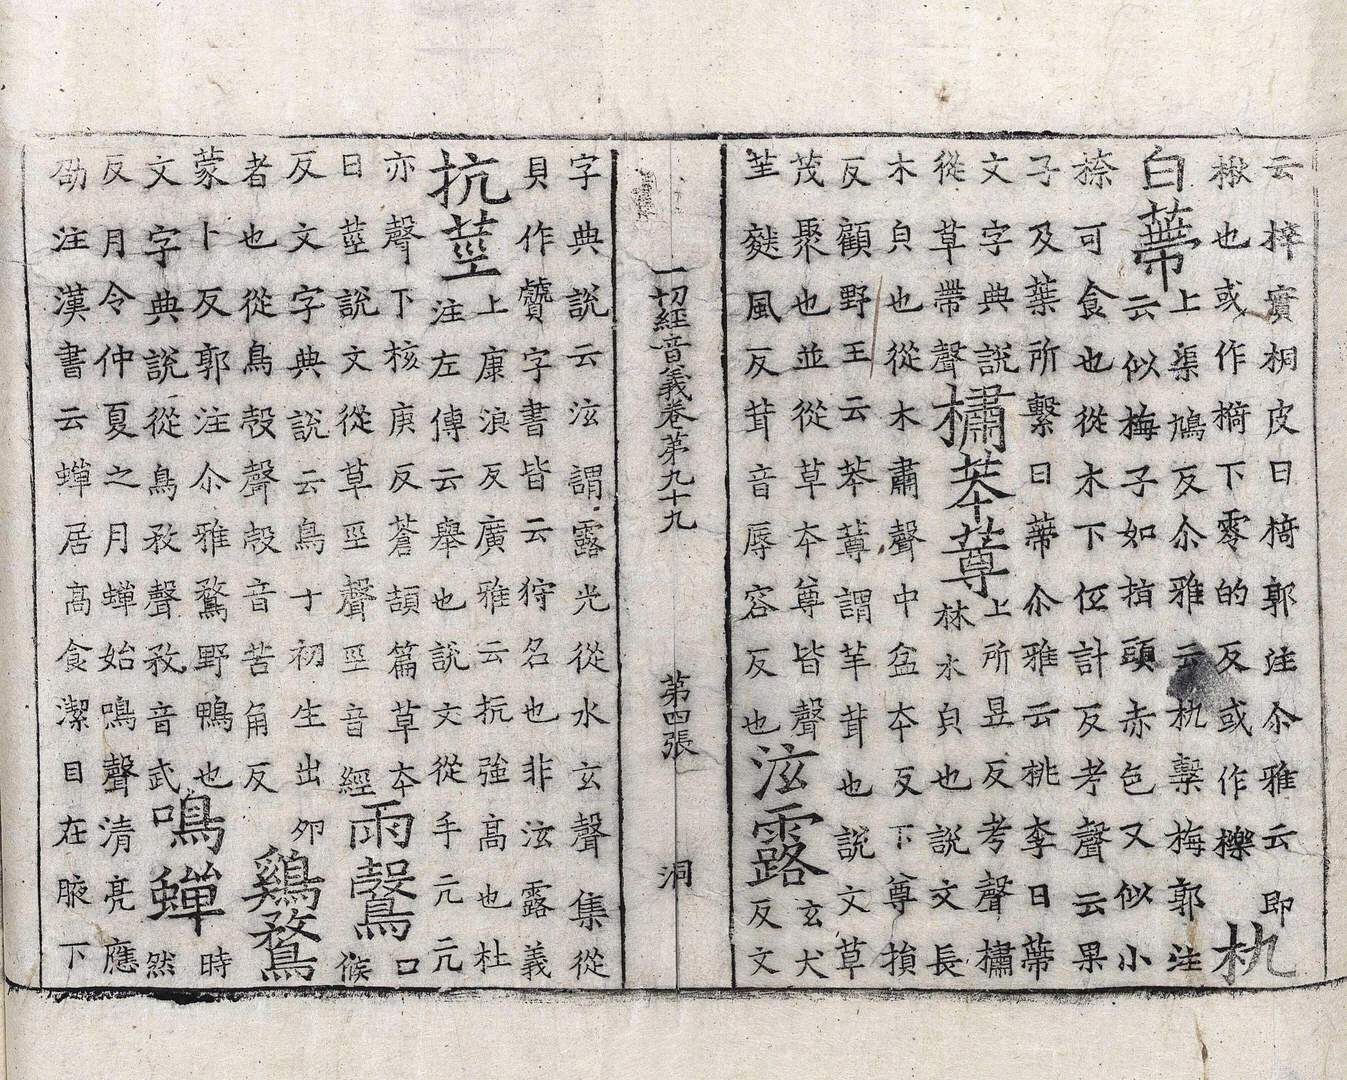 云梓實桐皮曰椅郭注尒雅云即
楸也或作檹下零的反或作櫟
朹白蔕
上渠鳩反尒雅云朹檕梅郭注
云似梅子如指頭赤色又似小
㮈可食也從木下㱏計反考聲云果
子及葉所繫曰蔕尒雅云桃李曰蔕
文字典說
從草帶聲
橚莽蓴
上所昱反考聲橚
林水㒵也說文長
木㒵也從木肅聲中盆夲反下尊損
反顧野王云莽蓴謂羊茸也說文草
茂聚也並從草夲尊皆聲
風反茸音辱容反也
泫露
玄犬
反文
一切經音義卷第九十九 第四張 洞
字典說云泫謂露光從水玄聲集從
貝作贙字書皆云狩名也非泫露義
抗莖
上康浪反廣雅云抗強高也杜
注左傳云舉也說文從手亢亢
亦聲下核庚反蒼頡篇草夲
曰莖說文從草巠聲巠音經
雨鷇
口
候
反文字典說云鳥子初生出卵
者也從鳥殼聲殼音苦角反
鷄鶩
蒙卜反郭注尒雅鶩野鴨也
文字典說從鳥敄聲敄音武
鳴蟬
時
然
反月令仲夏之月蟬始鳴聲清亮應
劭注漢書云蟬居高食潔目在腋下